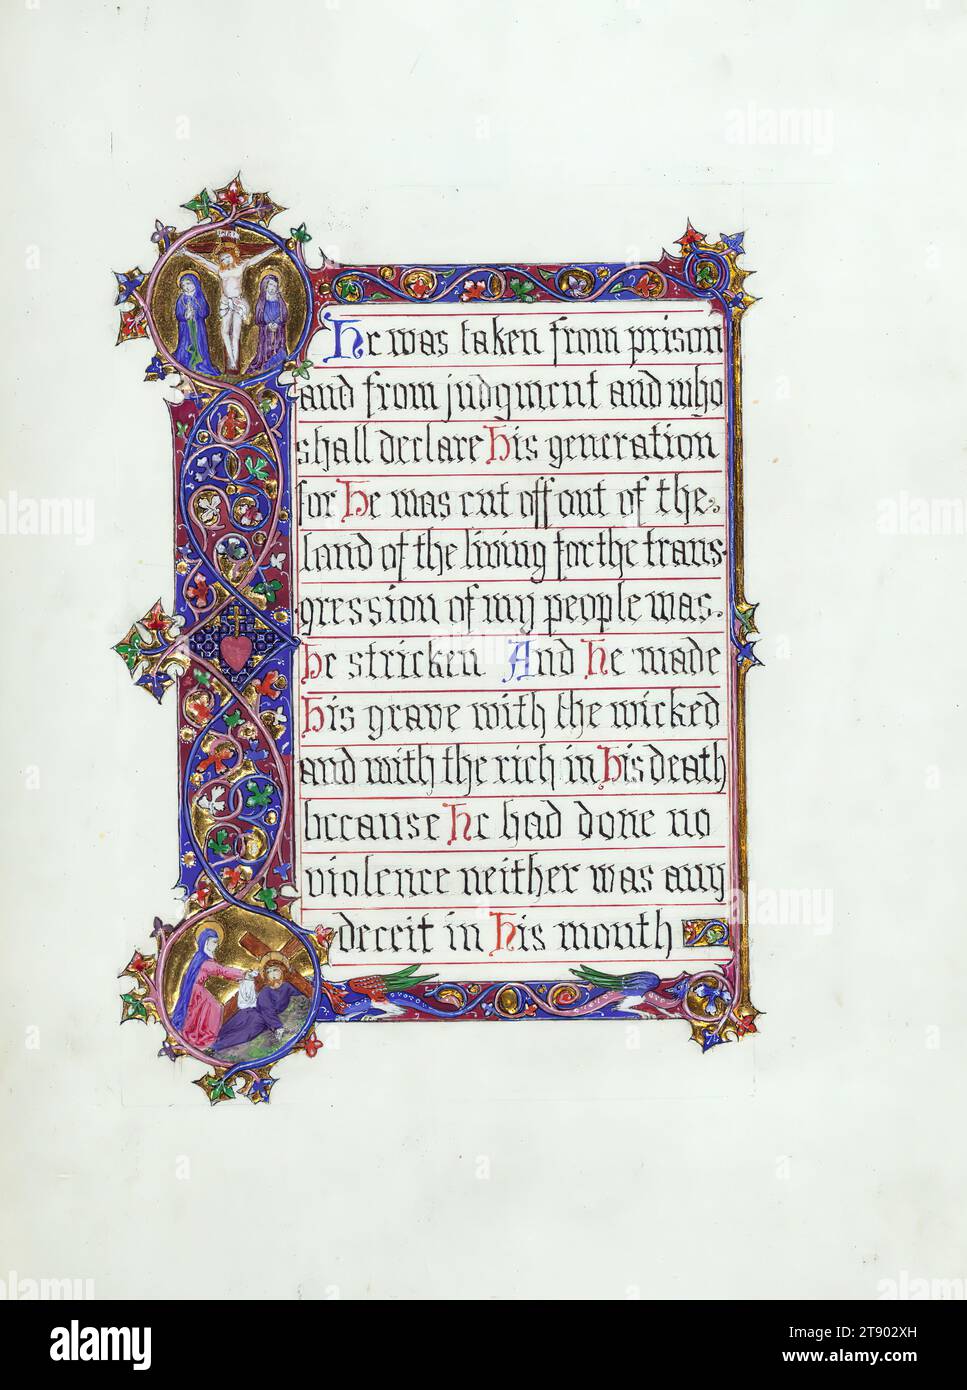 INRI
He was taken from prison
and from judgment and who
shall declare His generation
for He was cut off out of the
land of the living for the trans
gression of my people was
He stricken And He made
His grave with the wicked
and with the rich in His death
because He had done no
violence neither was any
deceit in His mouth
alamy
Image ID: 2T902XH
www.alamy.com